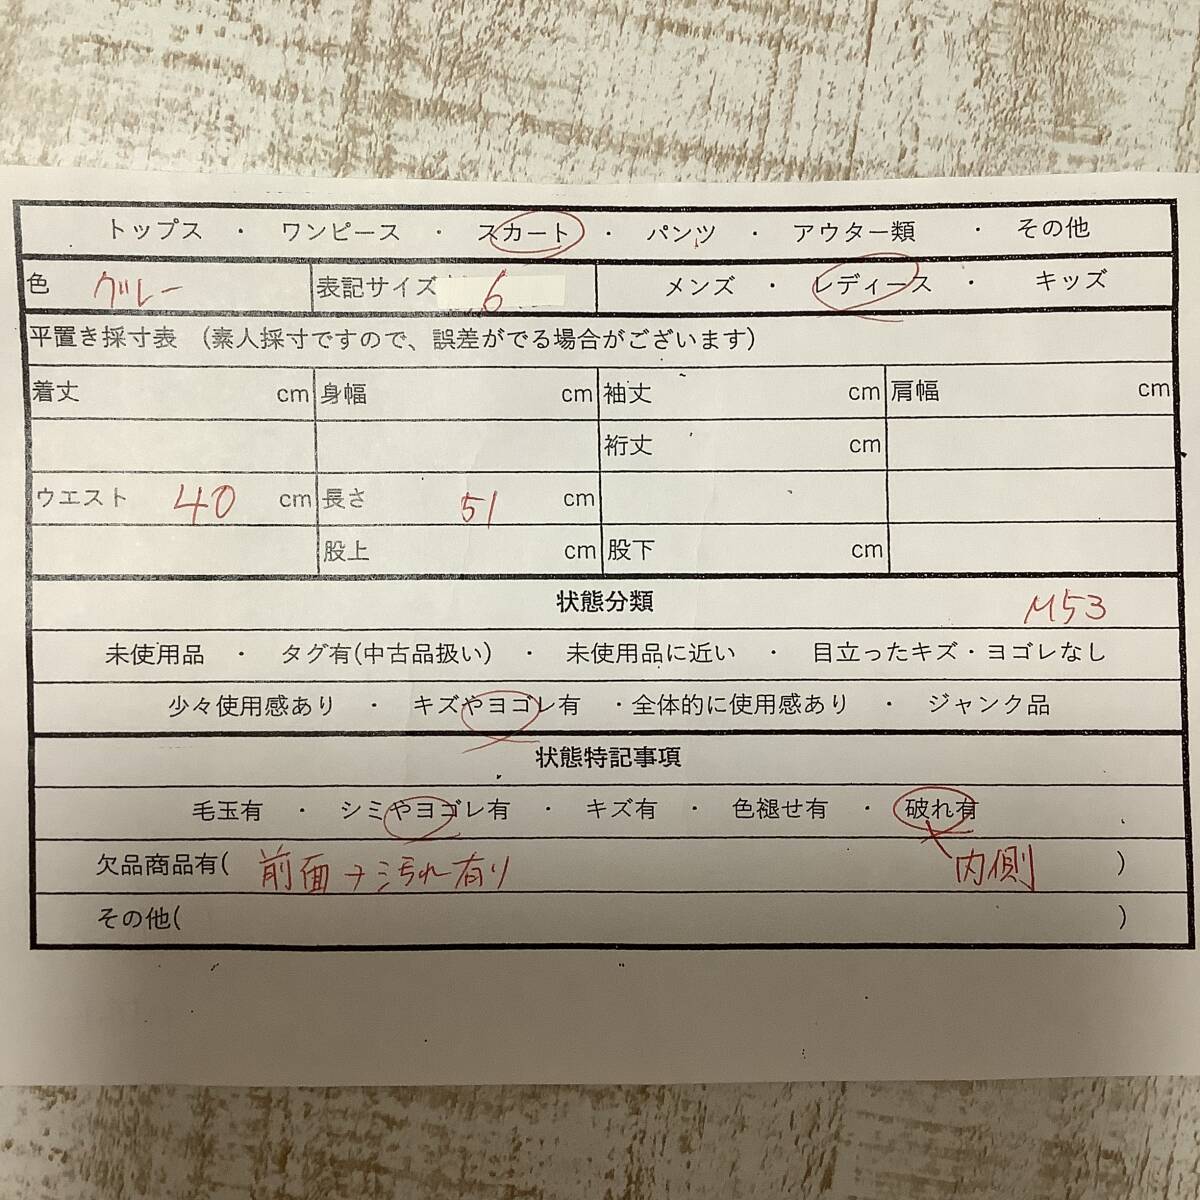 トップス ・ ワンピース ・ スカート ・ パンツ ・ アウター類 ・ その他
色 グレー 表記サイズ 6 メンズ ・ レディース ・ キッズ
平置き採寸表 (素人採寸ですので、誤差がでる場合がございます)
着丈 cm 身幅 cm 袖丈 cm 肩幅 cm
裄丈 cm
ウエスト 40 cm 長さ 51 cm
股上 cm 股下 cm
状態分類 M53
未使用品 ・ タグ有(中古品扱い) ・ 未使用品に近い ・ 目立ったキズ・ヨゴレなし
少々使用感あり ・ キズやヨゴレ有 ・全体的に使用感あり ・ ジャンク品
状態特記事項
毛玉有 ・ シミやヨゴレ有 ・ キズ有 ・ 色褪せ有 ・ 破れ有
欠品商品有( 前面→汚れ有り 内側 )
その他( )